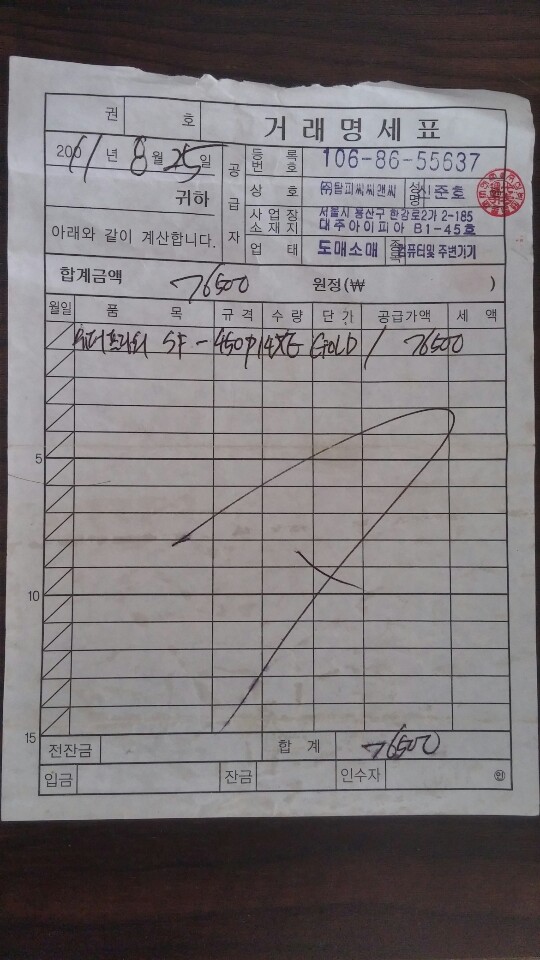 권 호 거래명세표
2011년 8월 25일
귀하
아래와 같이 계산합니다.
공급자
등록번호 106-86-55637
상호 ㈜탑피씨씨앤씨 성명 신준호
사업장소재지 서울시 용산구 한강로2가 2-185
대주아이피아 B1-45호
업태 도매소매 종목 컴퓨터및 주변기기
합계금액 76500 원정(₩ )
월일 품목 규격 수량 단가 공급가액 세액
SF-450P14XE GOLD / 76500
5
10
15
전잔금 합계 76500
입금 잔금 인수자 ㊞